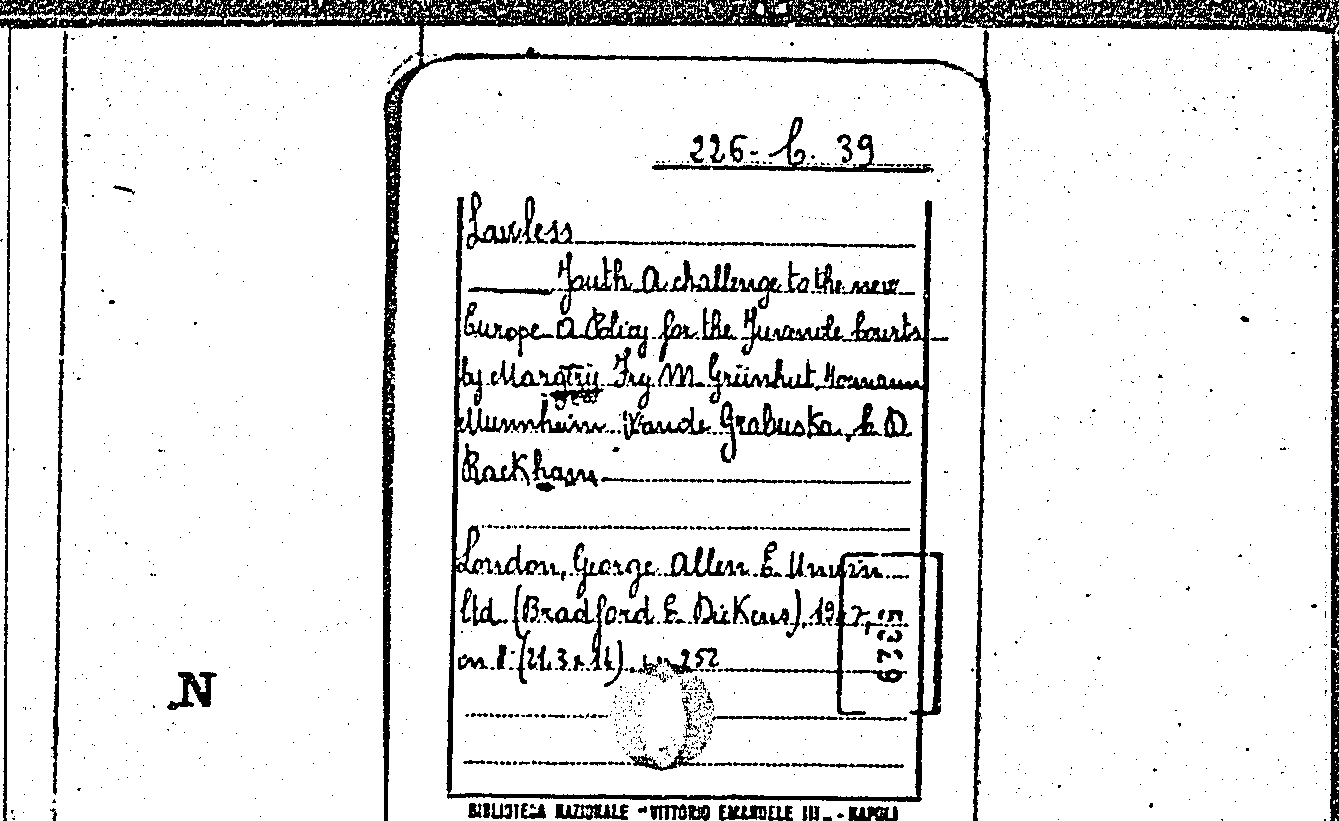 226- C. 39
Lawless
Youth A challenge to the new
Europe A Policy for the Juvenile Courts
by Margery Fry M. Grünhut, Hermann
Mannheim Wanda Grabuska, C. D.
Rackham
London, George Allen E. Unwin
ltd. (Bradford E. Dickens), 1947,
in 8° (21.3 x 14) 252
5329
N
BIBLIOTECA NAZIONALE "VITTORIO EMANUELE III" - NAPOLI